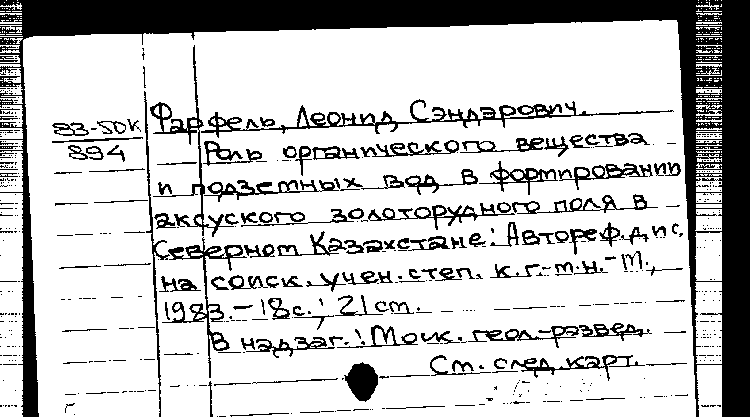 83-50К
894
Фарфель, Леонид Сэндарович.
Роль органического вещества
и подземных вод в формировании
аксуского золоторудного поля в
Северном Казахстане: Автореф. дис.
на соиск. учен. степ. к. г.-м. н. - М.,
1983. - 18с.; 21 см.
В надзаг.: Моск. геол.-развед.
См. след. карт.